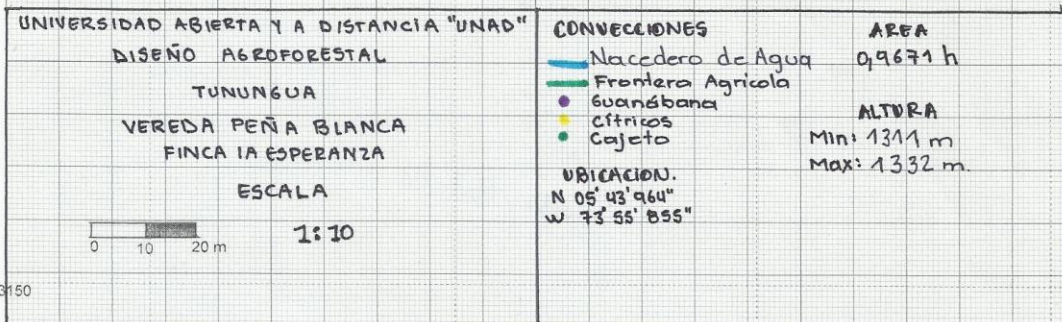 UNIVERSIDAD ABIERTA Y A DISTANCIA "UNAD"
DISEÑO AGROFORESTAL
TUNUNGUA
VEREDA PEÑA BLANCA
FINCA LA ESPERANZA
ESCALA
1:10
0 10 20 m
3150
CONVECCIONES
Nacedero de Agua
Frontera Agricola
Guanábana
Cítricos
Cajeto
UBICACION.
N 05' 43' 964"
W 73' 55' 855"
AREA
0,9671 h
ALTURA
Min: 1311 m
Max: 1332 m.